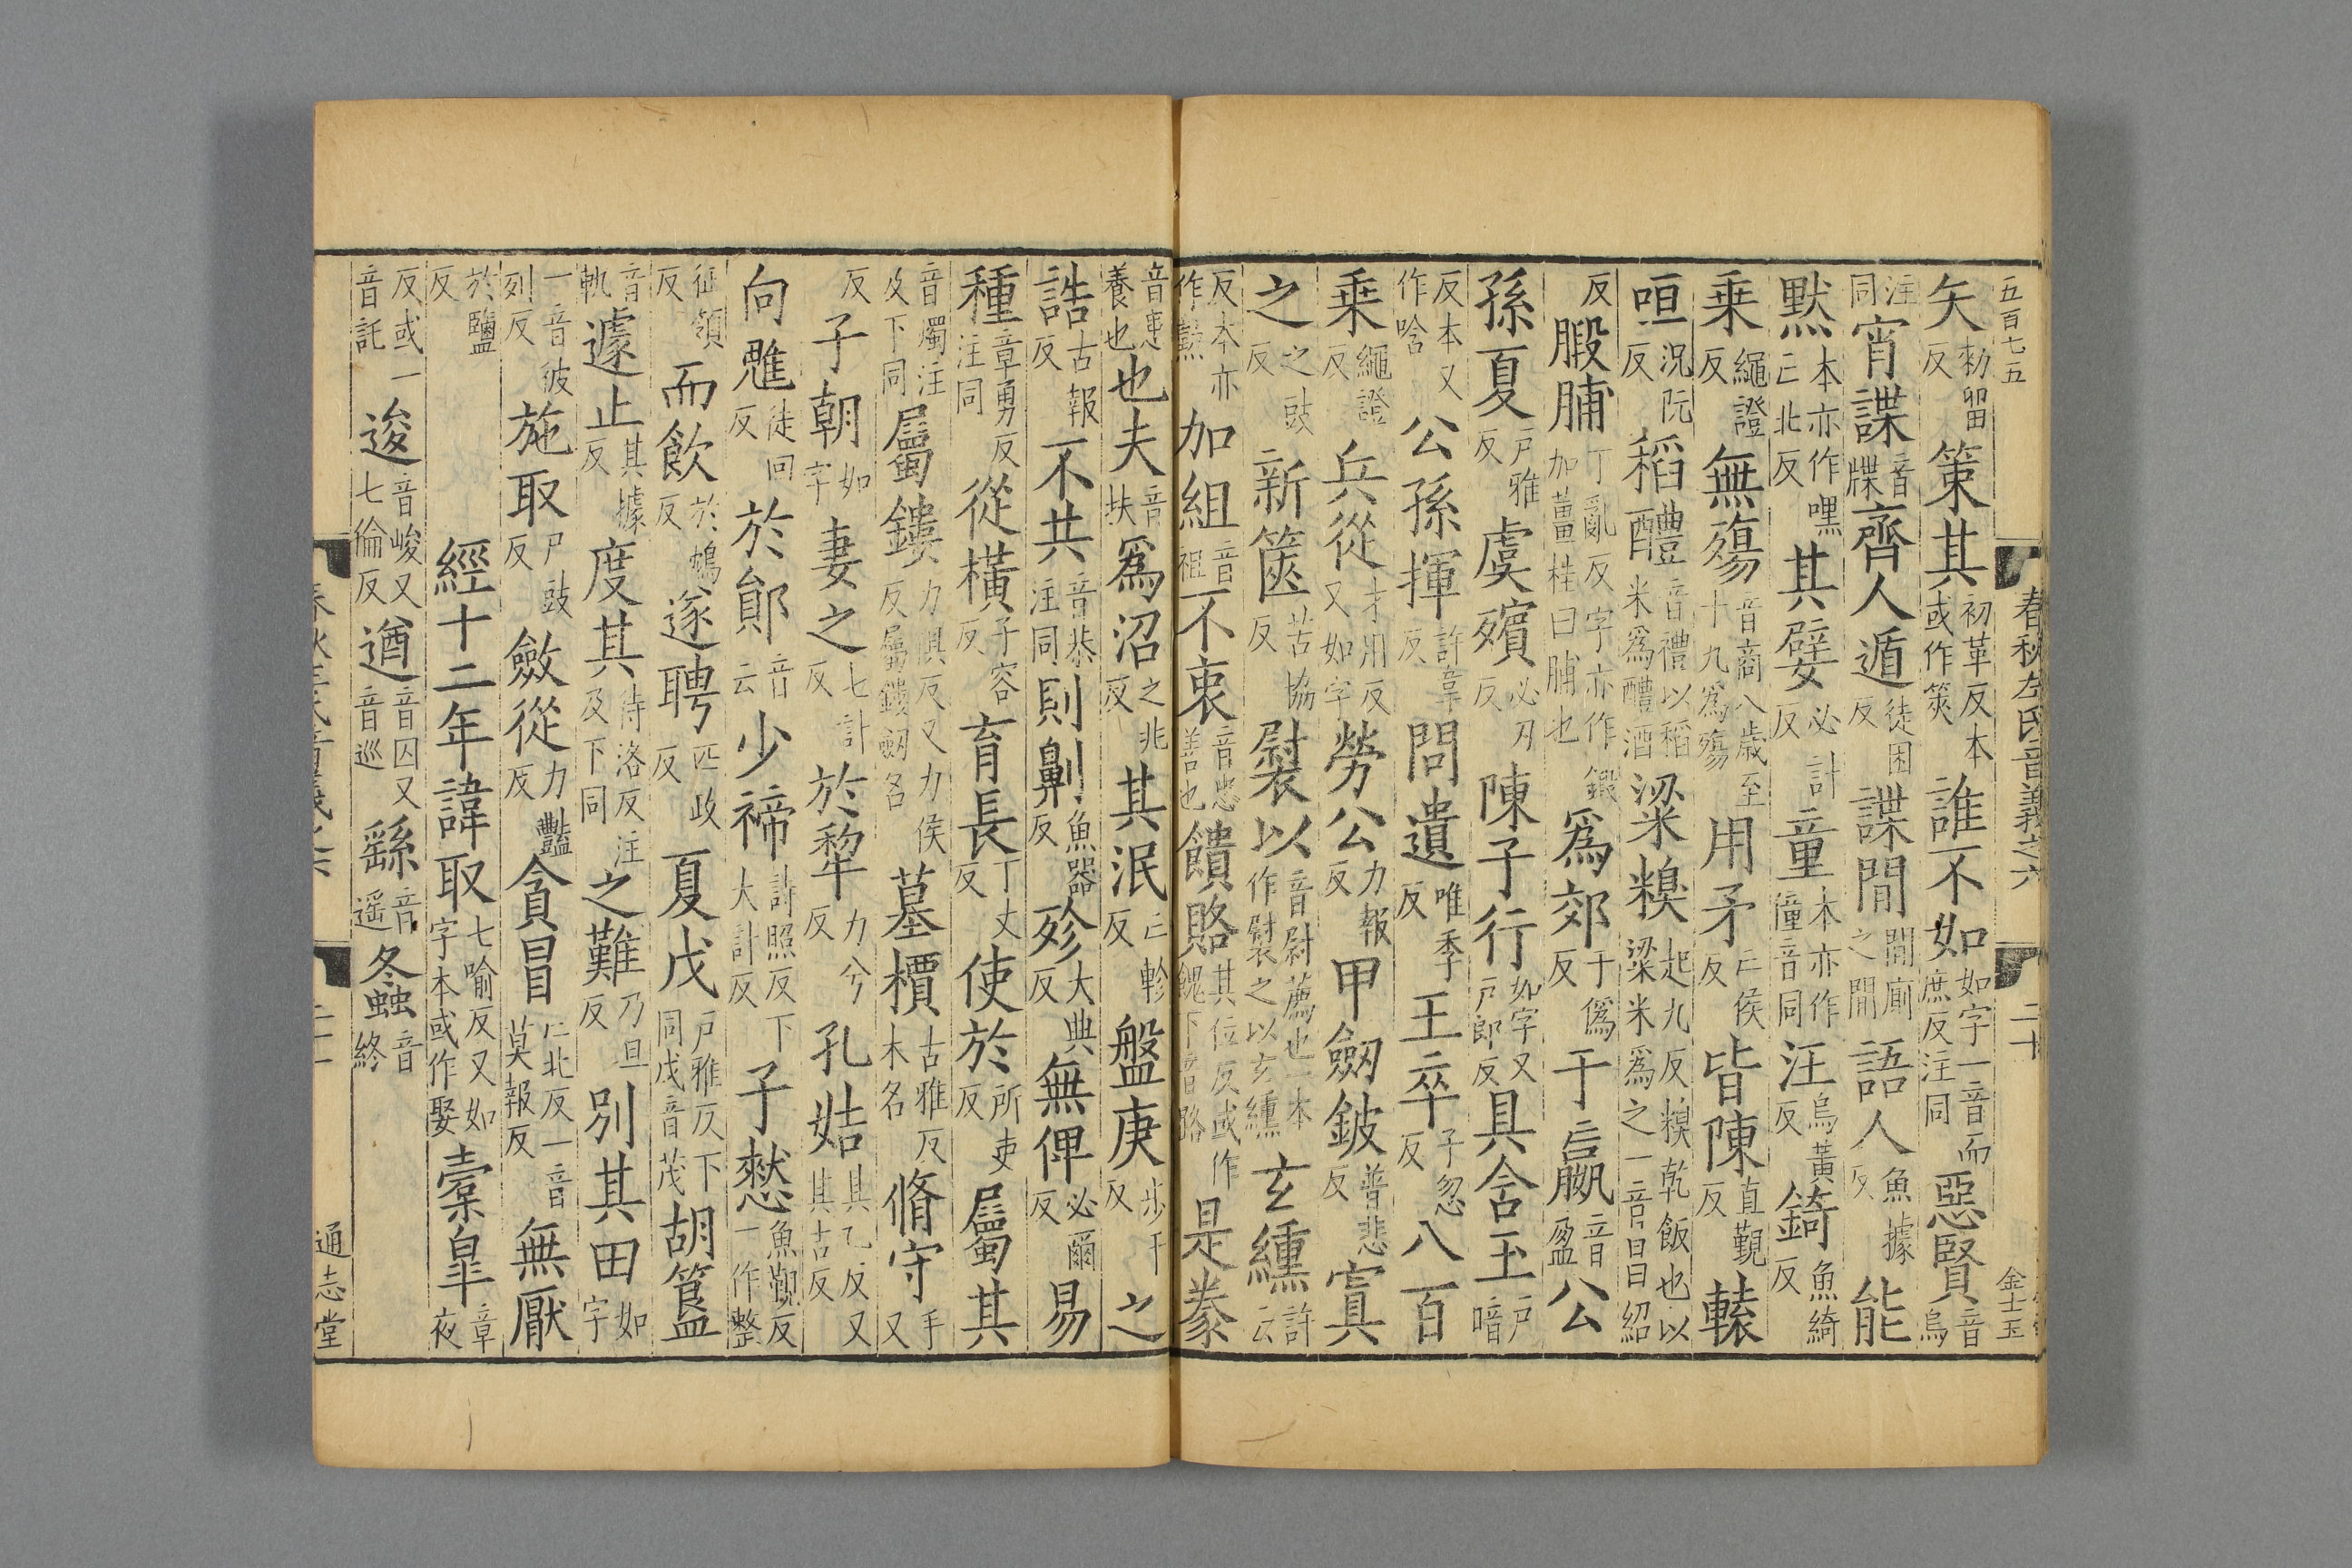 五百七五 春秋左氏音義之六 二十 金士玉
矢勑留反策其初革反本或作筴誰不如如字一音而庶反注同惡賢音烏
注同宵諜音牒齊人遁徒困反諜間間廁之間語人魚據反能
默本亦作嘿亡北反其嬖必計反童本亦作僮音同汪烏黃反錡魚綺反
乗繩證反無殤音商八歲至十九爲殤用矛亡侯反皆陳直覲反轅
咺況阮反稻醴音禮以稻米爲醴酒粱糗起九反糗乾飯也以粱米爲之一音昌紹
反腶脯丁亂反字亦作鍛加薑桂曰脯也爲郊于僞反于嬴音盈公
孫夏戶雅反虞殯必刃反陳子行如字又戶郎反具含玉戶暗
反本又作唅公孫揮許韋反問遺唯季反王卒子忽反八百
乗繩證反兵從才用反又如字勞公力報反甲劒鈹普悲反寘
之之豉反新篋苦協反褽以音尉薦也一本作褽之以玄纁玄纁許云
反本亦作䵰加組音祖不衷音忠善也饋賂其位反或作餽下音路是豢
音患養也也夫音扶爲沼之兆反其泯亡軫反盤庚步干反之
誥古報反不共音恭注同則劓魚器反殄大典反無俾必爾反易
種章勇反注同從橫子容反育長丁丈反使於所吏反屬其
音燭注及下同屬鏤力俱反又力侯反屬鏤劒名墓檟古雅反木名脩守手又
反子朝如字妻之七計反於犂力兮反孔姞其乙反又其吉反
向魋徒回反於鄖音云少禘詩照反下大計反子憖魚覲反一作整
征領反而飲於鴆反遂聘匹政反夏戊戶雅反下同戊音茂胡簋
音軌遽止其據反度其待洛反注及下同之難乃旦反別其田如字
一音彼列反施取尸豉反斂從力豔反貪冒亡北反一音莫報反無厭
於鹽反
經十二年諱取七喻反又如字本或作娶橐皐章夜
反或一音託逡音峻又七倫反遒音囚又音巡繇音遥冬螽音終
二十一 通志堂